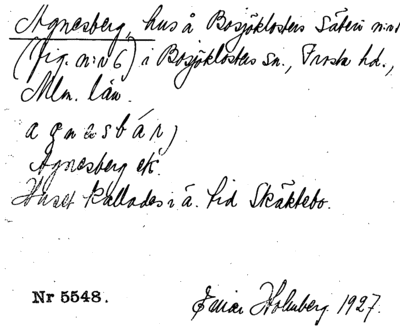 Agnesberg, hus å Bosjöklosters Säteri n:r 1
(fig. n:r 6) i Bosjöklosters sn., Frosta hd.,
Mlm. län.
Agnesberg ek.
Huset kallades i ä. tid Skäktebo.
Nr 5548. Einar Holmberg 1927.